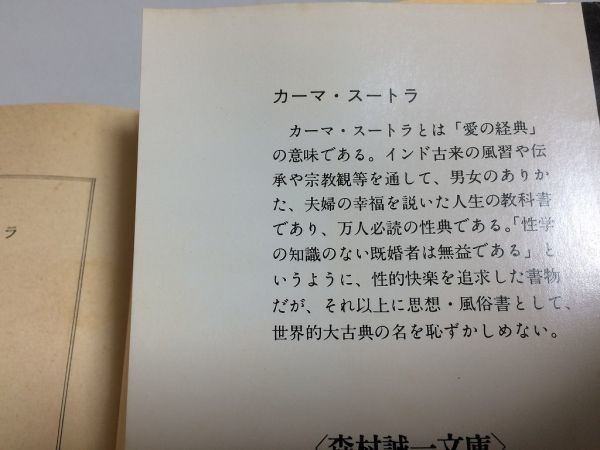 カーマ・スートラ
カーマ・スートラとは「愛の経典」
の意味である。インド古来の風習や伝
承や宗教観等を通して、男女のありか
た、夫婦の幸福を説いた人生の教科書
であり、万人必読の性典である。「性学
の知識のない既婚者は無益である」と
いうように、性的快楽を追求した書物
だが、それ以上に思想・風俗書として、
世界的大古典の名を恥ずかしめない。
〈森村誠一文庫〉
ラ